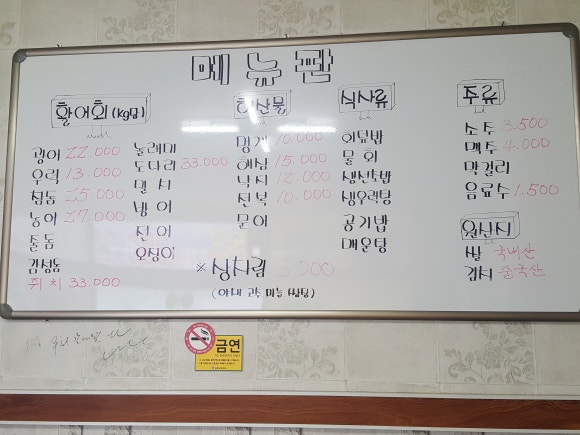 메뉴판
활어회 (kg당)
광어 22.000
우럭 13.000
참돔 25.000
농어 27.000
돌돔
감성돔
쥐치 33.000
놀래미
도다리 33.000
멸치
방어
전어
오징어
해산물
멍게 10.000
해삼 15.000
낙지 12.000
전복 10.000
문어
식사류
회덮밥
물회
생선초밥
생우럭탕
공기밥
매운탕
※ 상차림 3.000
(야채 고추 마늘 쌈장)
주류
소주 3.500
맥주 4.000
막걸리
음료수 1.500
원산지
쌀 국내산
김치 중국산
금연